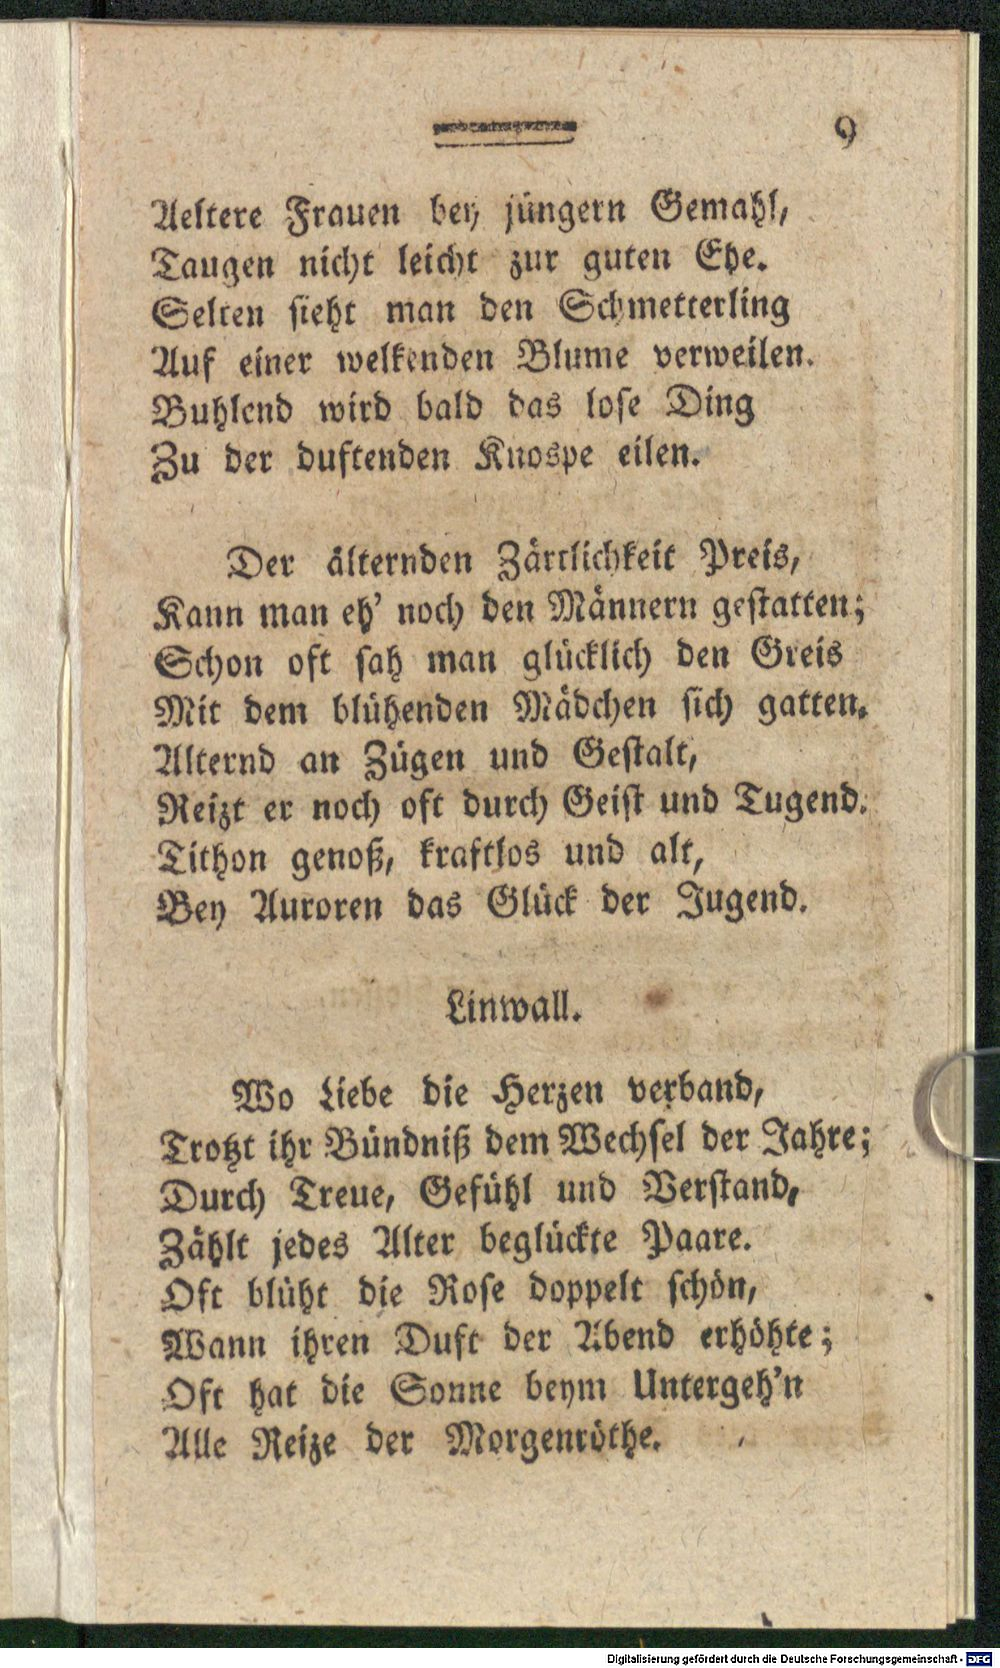 9
Aeltere Frauen bey jüngern Gemahl,
Taugen nicht leicht zur guten Ehe.
Selten sieht man den Schmetterling
Auf einer welkenden Blume verweilen.
Buhlend wird bald das lose Ding
Zu der duftenden Knospe eilen.
Der älternden Zärtlichkeit Preis,
Kann man eh' noch den Männern gestatten;
Schon oft sah man glücklich den Greis
Mit dem blühenden Mädchen sich gatten.
Alternd an Zügen und Gestalt,
Reizt er noch oft durch Geist und Tugend.
Tithon genoß, kraftlos und alt,
Bey Auroren das Glück der Jugend.
Linwall.
Wo Liebe die Herzen verband,
Trotzt ihr Bündniß dem Wechsel der Jahre;
Durch Treue, Gefühl und Verstand,
Zählt jedes Alter beglückte Paare.
Oft blüht die Rose doppelt schön,
Wann ihren Duft der Abend erhöhte;
Oft hat die Sonne beym Untergeh'n
Alle Reize der Morgenröthe.
Digitalisierung gefördert durch die Deutsche Forschungsgemeinschaft - DFG